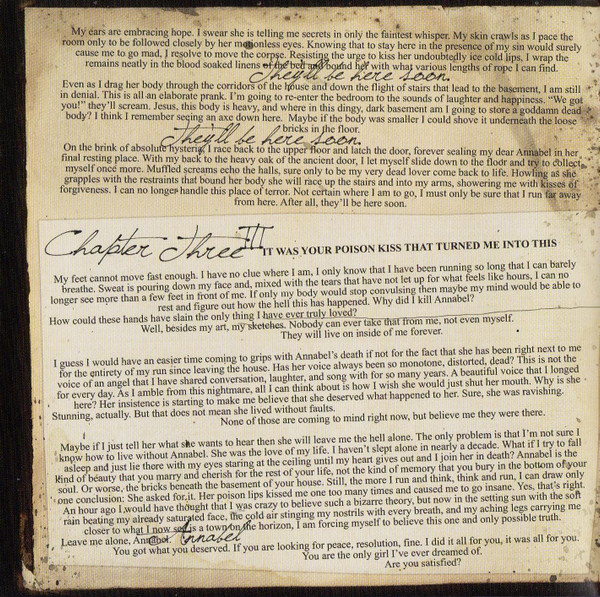 My ears are embracing hope. I swear she is telling me secrets in only the faintest whisper. My skin crawls as I pace the
room only to be followed closely by her motionless eyes. Knowing that to stay here in the presence of my sin would surely
cause me to go mad, I resolve to move the corpse. Resisting the urge to kiss her undoubtedly ice cold lips, I wrap the
remains neatly in the blood soaked linens of the bed and bound her with what various lengths of rope I can find.
They'll be here soon.
Even as I drag her body through the corridors of the house and down the flight of stairs that lead to the basement, I am still
in denial. This is all an elaborate prank. I'm going to re-enter the bedroom to the sounds of laughter and happiness. "We got
you!" they'll scream. Jesus, this body is heavy, and where in this dingy, dark basement am I going to store a goddamn dead
body? I think I remember seeing an axe down here. Maybe if the body was smaller I could shove it underneath the loose
bricks in the floor.
They'll be here soon.
On the brink of absolute hysteria, I race back to the upper floor and latch the door, forever sealing my dear Annabel in her
final resting place. With my back to the heavy oak of the ancient door, I let myself slide down to the floor and try to collect
myself once more. Muffled screams echo the halls, sure only to be my very dead lover come back to life. Howling as she
grapples with the restraints that bound her body she will race up the stairs and into my arms, showering me with kisses of
forgiveness. I can no longer handle this place of terror. Not certain where I am to go, I must only be sure that I run far away
from here. After all, they'll be here soon.
Chapter Three III IT WAS YOUR POISON KISS THAT TURNED ME INTO THIS
My feet cannot move fast enough. I have no clue where I am, I only know that I have been running so long that I can barely
breathe. Sweat is pouring down my face and, mixed with the tears that have not let up for what feels like hours, I can no
longer see more than a few feet in front of me. If only my body would stop convulsing then maybe my mind would be able to
rest and figure out how the hell this has happened. Why did I kill Annabel?
How could these hands have slain the only thing I have ever truly loved?
Well, besides my art, my sketches. Nobody can ever take that from me, not even myself.
They will live on inside of me forever.
I guess I would have an easier time coming to grips with Annabel's death if not for the fact that she has been right next to me
for the entirety of my run since leaving the house. Has her voice always been so monotone, distorted, dead? This is not the
voice of an angel that I have shared conversation, laughter, and song with for so many years. A beautiful voice that I longed
for every day. As I amble from this nightmare, all I can think about is how I wish she would just shut her mouth. Why is she
here? Her insistence is starting to make me believe that she deserved what happened to her. Sure, she was ravishing.
Stunning, actually. But that does not mean she lived without faults.
None of those are coming to mind right now, but believe me they were there.
Maybe if I just tell her what she wants to hear then she will leave me the hell alone. The only problem is that I'm not sure I
know how to live without Annabel. She was the love of my life. I haven't slept alone in nearly a decade. What if I try to fall
asleep and just lie there with my eyes staring at the ceiling until my heart gives out and I join her in death? Annabel is the
kind of beauty that you marry and cherish for the rest of your life, not the kind of memory that you bury in the bottom of your
soul. Or worse, the bricks beneath the basement of your house. Still, the more I run and think, think and run, I can draw only
one conclusion; She asked for it. Her poison lips kissed me one too many times and caused me to go insane. Yes, that's right.
An hour ago I would have thought that I was crazy to believe such a bizarre theory, but now in the setting sun with the soft
rain beating my already saturated face, the cold air stinging my nostrils with every breath, and my aching legs carrying me
closer to what I now see is a town on the horizon, I am forcing myself to believe this one and only possible truth.
Leave me alone, Annabel. Annabel
You got what you deserved. If you are looking for peace, resolution, fine. I did it all for you, it was all for you.
You are the only girl I've ever dreamed of.
Are you satisfied?